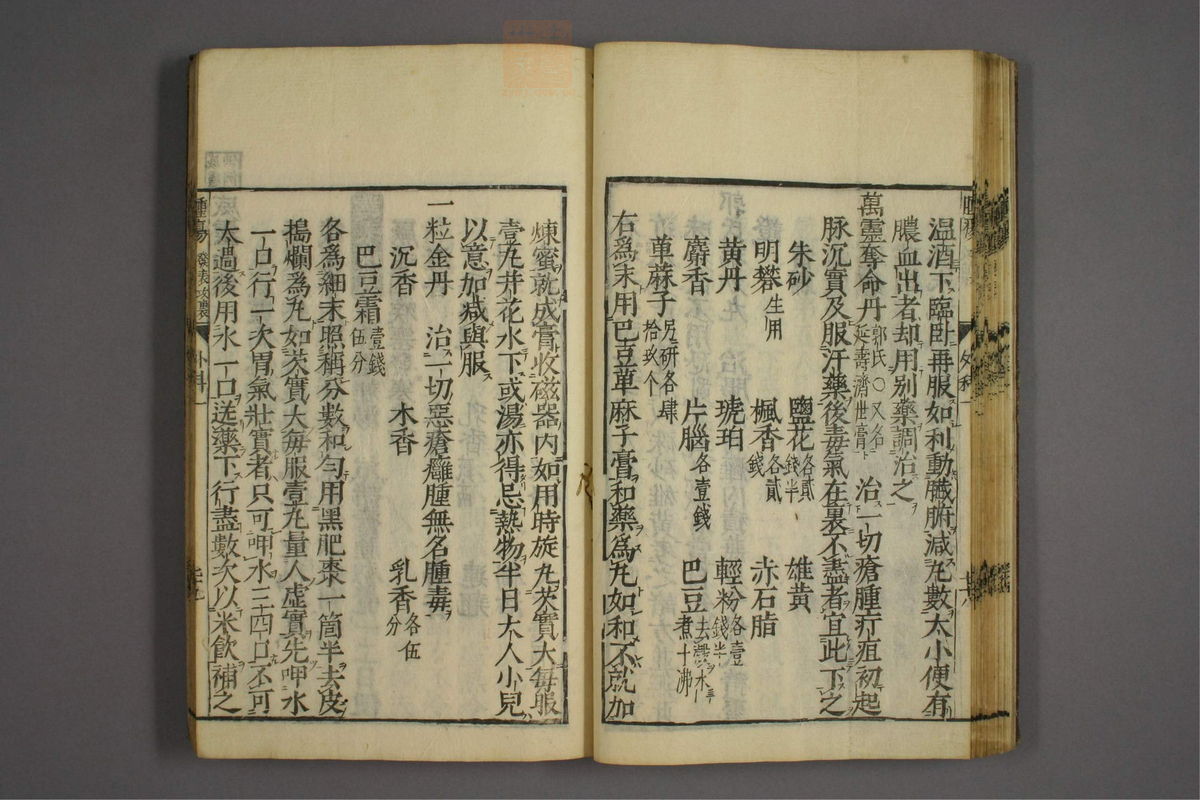 温酒下臨卧再服如利動臟腑減丸數太小便有
膿血出者却用別藥調治之
萬靈奪命丹郭氏〇又名延壽濟世膏治一切瘡腫疔疽初起
脉沉實及服汗藥後毒氣在裏不盡者宜此下之
朱砂 鹽花各貳錢半 雄黃
明礬生用 楓香各貳錢 赤石脂
黃丹 琥珀 輕粉各壹錢半
麝香 片腦各壹錢 巴豆去殼水煮十沸
萆蔴子另研各肆拾玖个
右爲末用巴荳萆麻子膏和藥爲丸如和不就加
煉蜜就成膏收磁器內如用時旋丸芡實大每服
壹丸井花水下或湯亦得忌熱物半日大人小兒
以意加减與服
一粒金丹 治一切惡瘡癰腫無名腫毒
沉香 木香 乳香各伍分
巴豆霜壹錢伍分
各爲細末照稱分數和勻用黑肥棗一箇半去皮
搗爛爲丸如芡實大每服壹丸量人虛實先呷水
一口行一次胃氣壯實者只可呷水三四口不可
太過後用水一口送藥下行盡數次以米飲補之